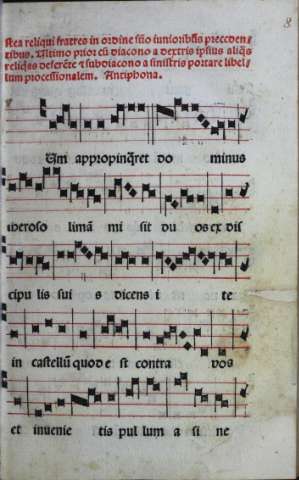 8
stea reliqui fratres in ordine suo iunioribus preceden-
tibus. Ultimo prior cū diacono a dextris ipsius aliqs
reliqes deferēte ⁊ subdiacono a sinistris portare libel-
lum processionalem. Antiphona.
Um appropinqret do minus
iheroso limā mi sit du os ex dis
cipu lis sui s dicens i te
in castellū quod e st contra vos
et invenie tis pul lum a si ne